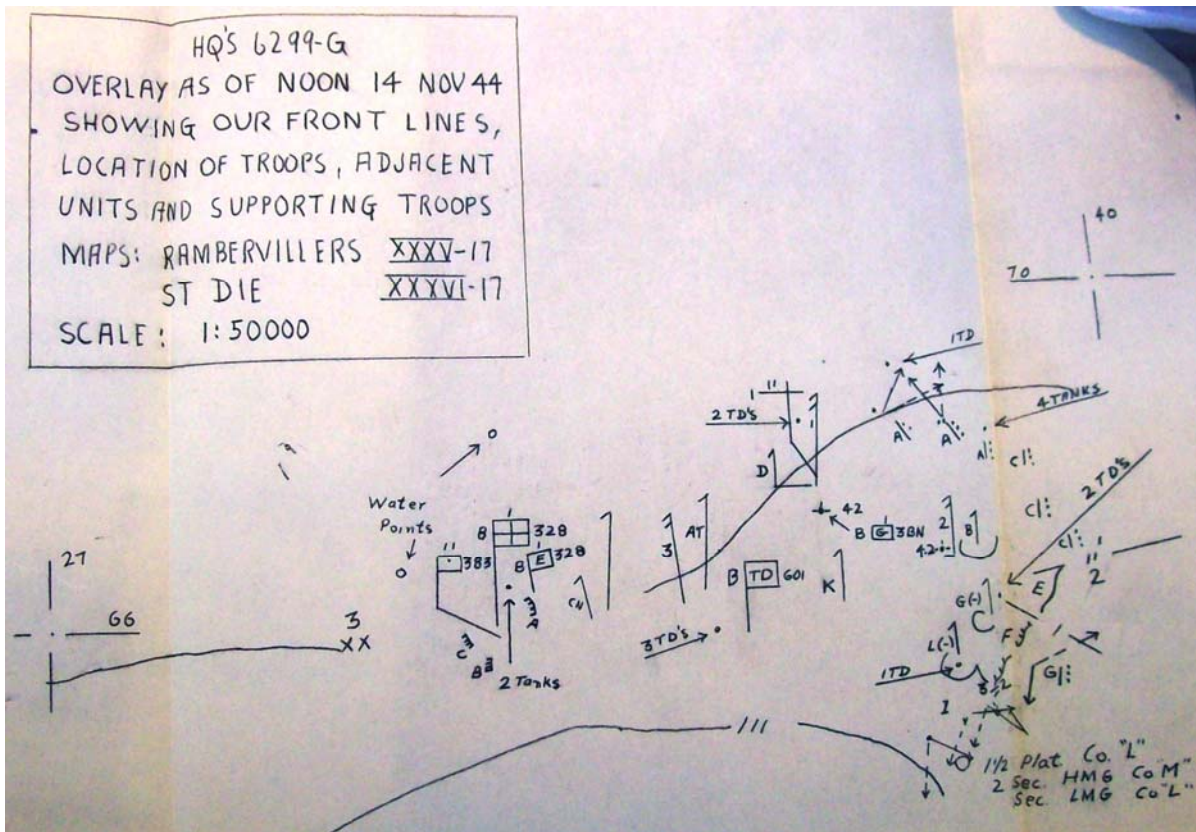 HQ'S 6299-G
OVERLAY AS OF NOON 14 NOV 44
SHOWING OUR FRONT LINES,
LOCATION OF TROOPS, ADJACENT
UNITS AND SUPPORTING TROOPS
MAPS: RAMBERVILLERS XXXV-17
ST DIE XXXVI-17
SCALE: 1:50000
40
70
1TD
4 TANKS
2 TD'S
A
A
A
C
D
2 TD'S
Water
Points
42
B G 3BN
C
8 328
383
B E 328
3
AT
2
B
4.2
C
27
66
3
XX
CN
A
C
B
2 Tanks
B TD 601
K
3 TD'S
G(-)
E
2
F
L(-)
1TD
G
III
1 1/2 Plat. Co. "L"
2 Sec. HMG Co "M"
Sec. LMG Co "L"